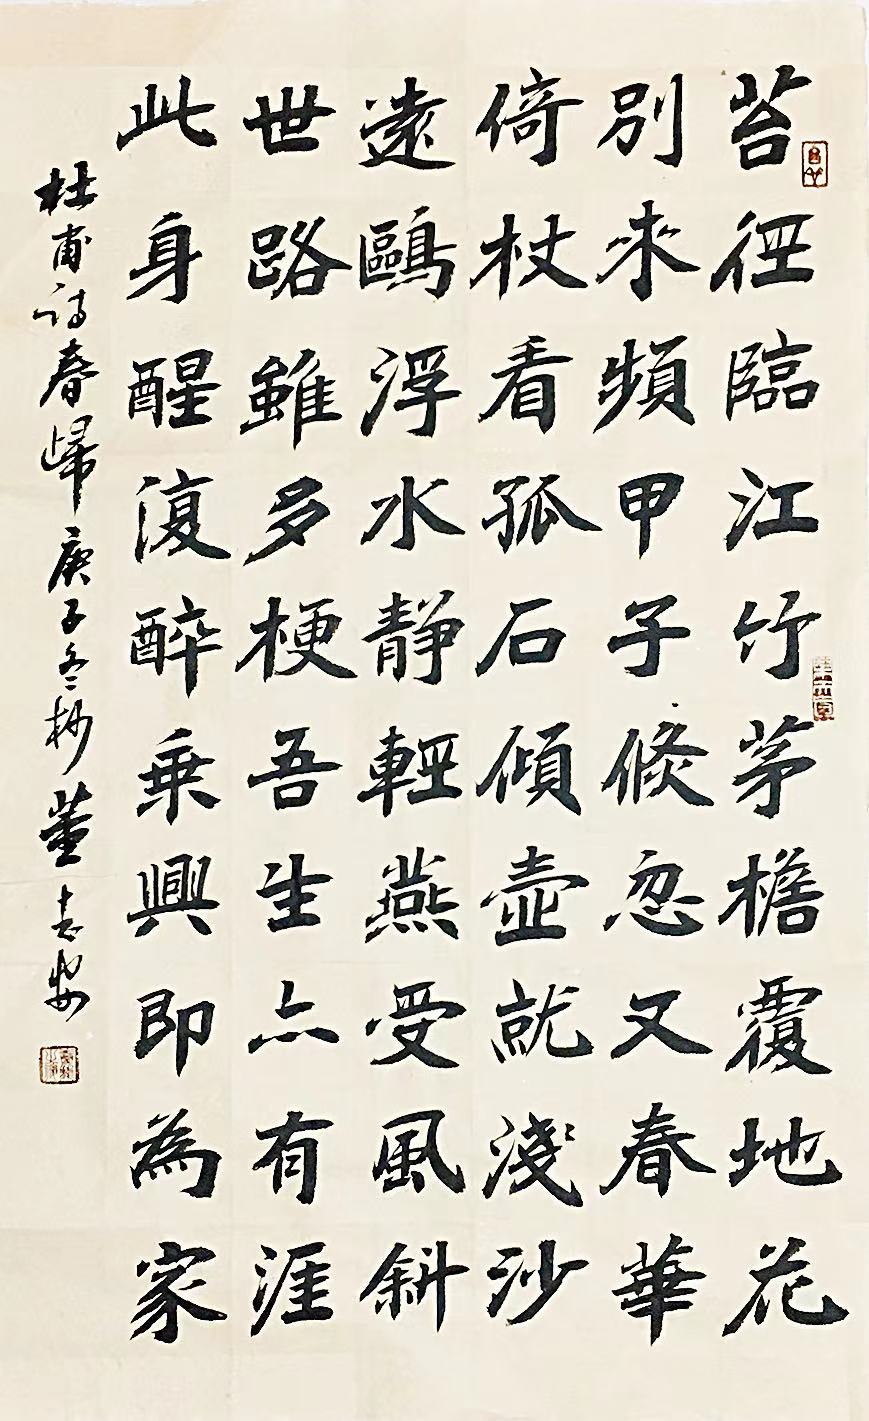 苔徑臨江竹茅檐覆地花
別來頻甲子倐忽又春華
倚杖看孤石傾壺就淺沙
遠鷗浮水靜輕燕受風斜
世路雖多梗吾生亦有涯
此身醒復醉乗興即為家
杜甫诗春歸庚子冬杪董